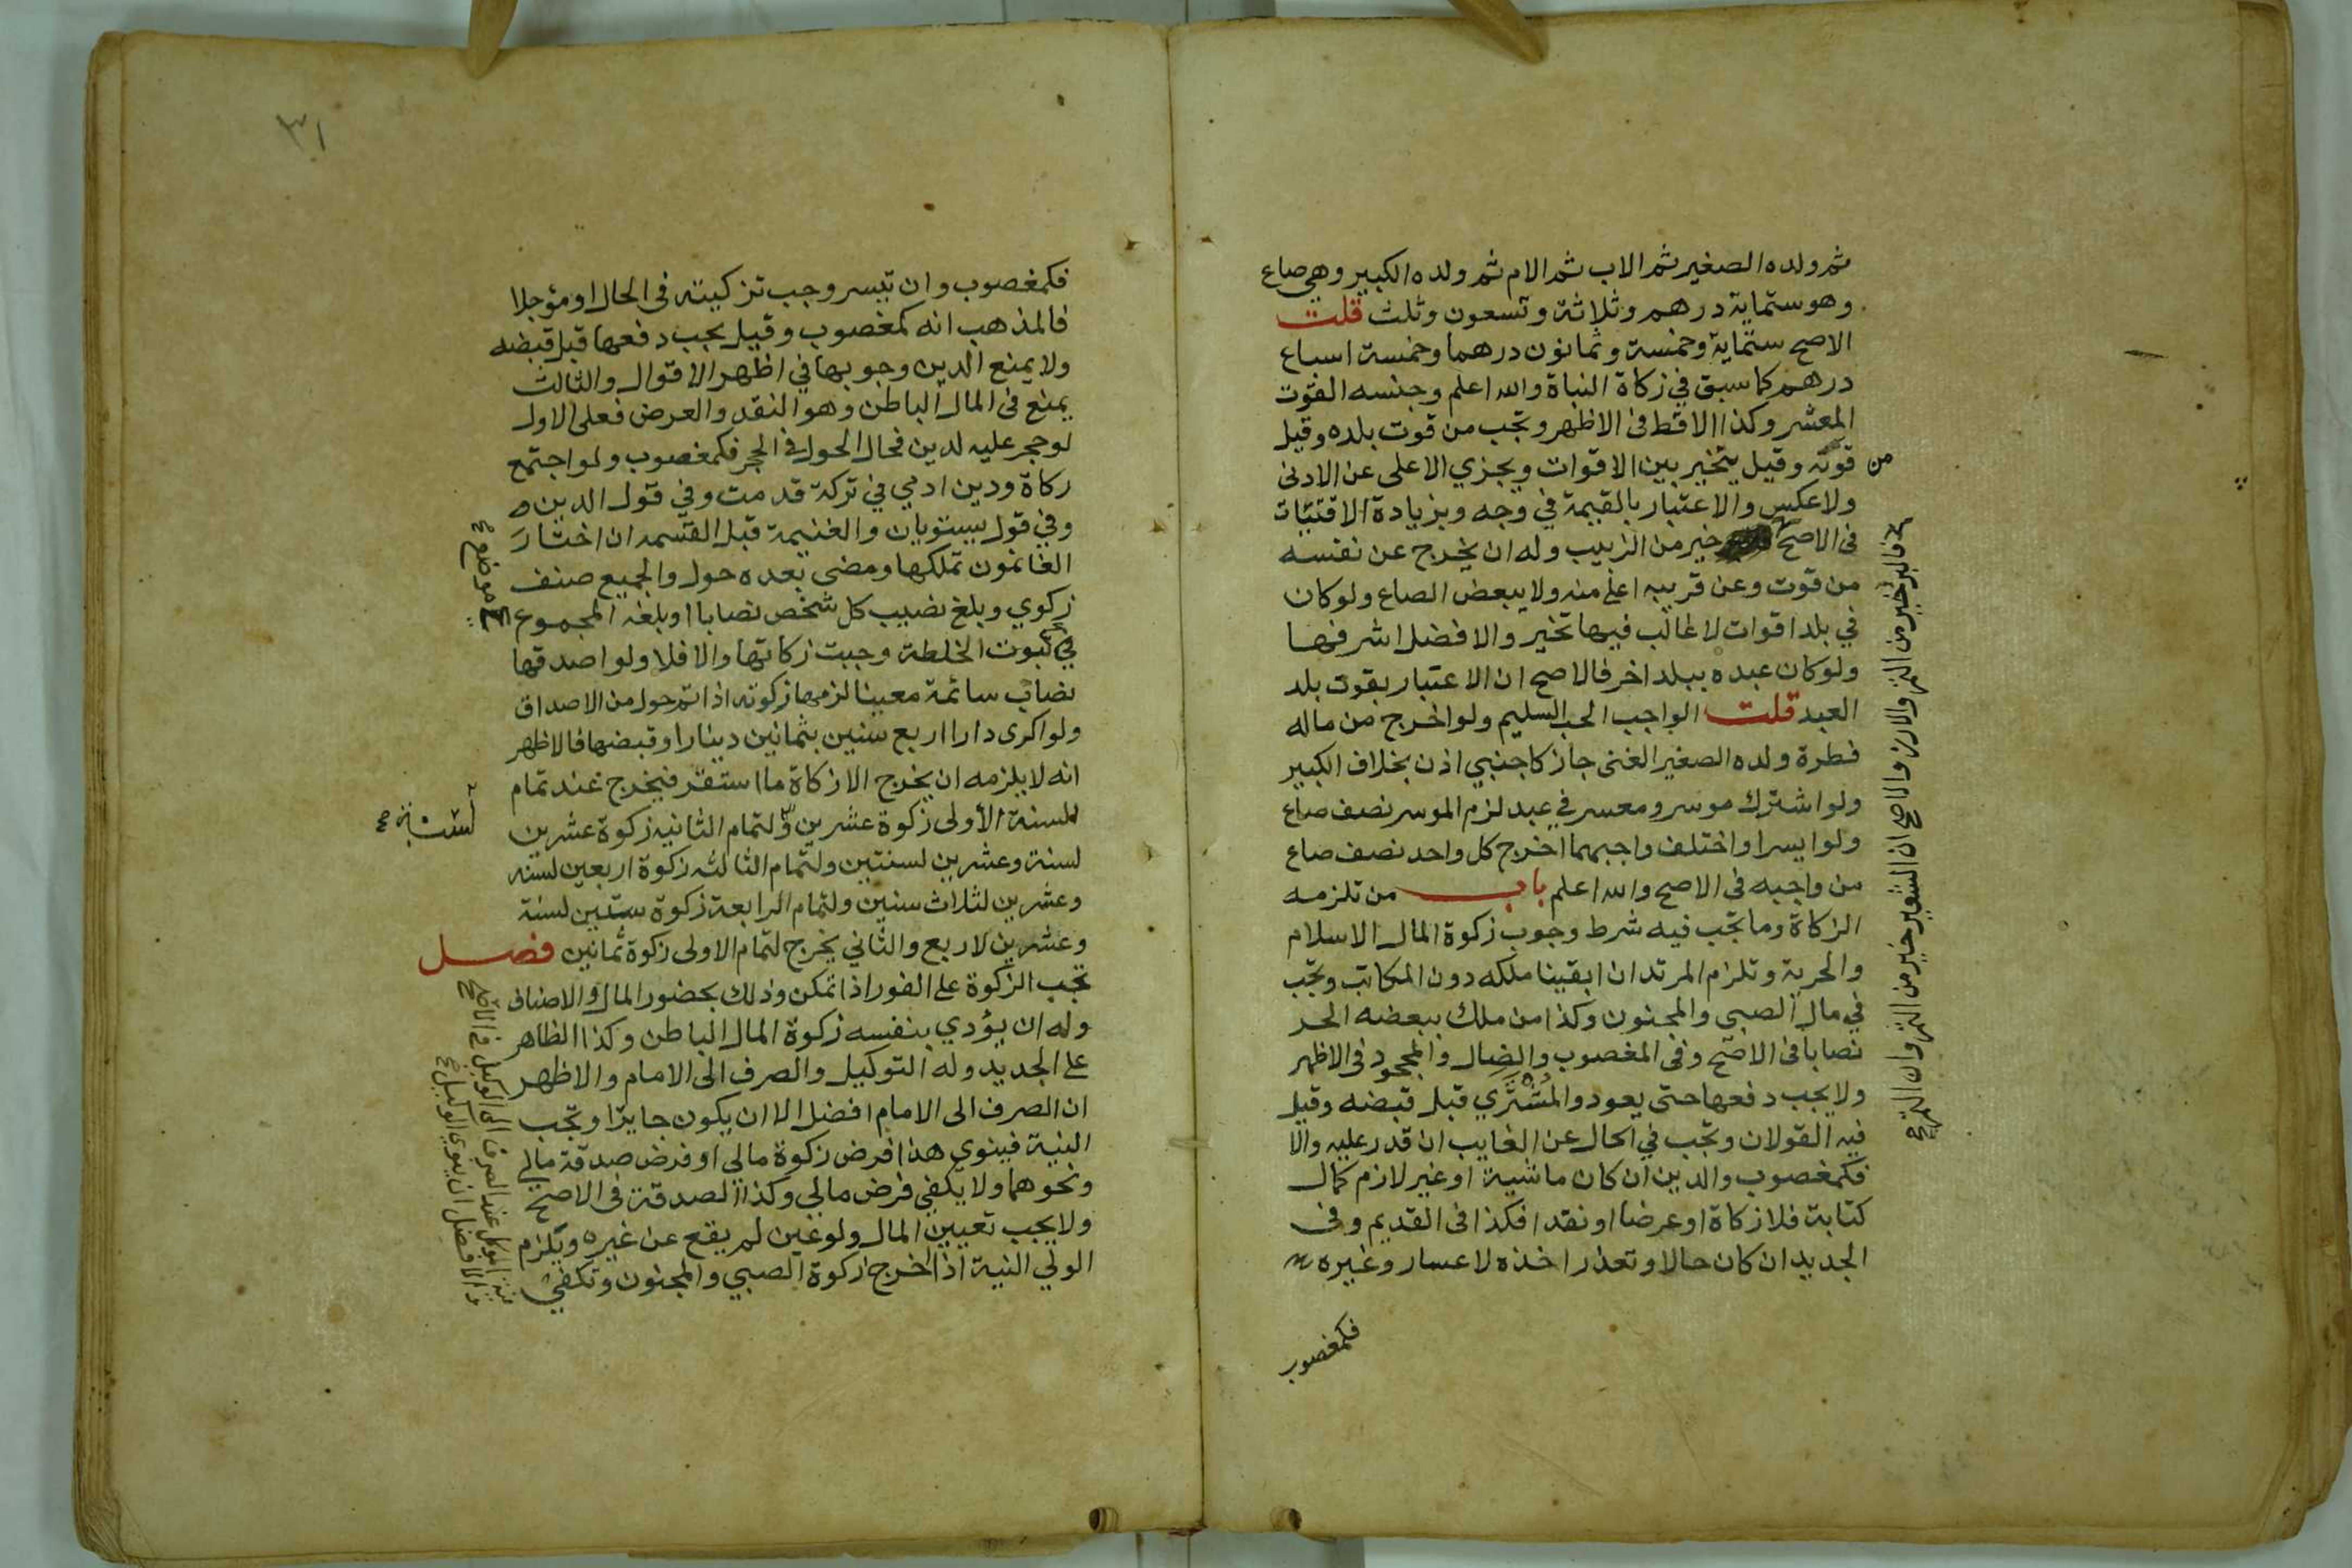 ثم ولده الصغير ثم الاب ثم الام ثم ولده الكبير وهي صاع
وهو ستماية درهم وثلاثة وتسعون وثلث قلت
الاصح ستماية وخمسة وثمانون درهما وخمسة اسباع
درهم كما سبق في زكاة النباة والله اعلم وجنسه القوت
المعشر وكذا الاقط فى الاظهر وتجب من قوت بلده وقيل
من قوته وقيل يتخير بين الاقوات ويجزي الاعلى عن الادنى
ولا عكس والاعتبار بالقيمة في وجه وبزيادة الاقتيات
فى الاصح خير من الزبيب وله ان يخرج عن نفسه
من قوت وعن قريبه اعلى منه ولا يبعض الصاع ولو كان
في بلد اقوات لا غالب فيها تخير والافضل اشرفها
ولو كان عبده ببلد اخر فالاصح ان الاعتبار بقوت بلد
العبد قلت الواجب الحب السليم ولو اخرج من ماله
فطرة ولده الصغير الغنى جاز كاجنبي اذن بخلاف الكبير
ولو اشترك موسر ومعسر في عبد لزم الموسر نصف صاع
ولو ايسرا واختلف واجبهما اخرج كل واحد نصف صاع
من واجبه فى الاصح والله اعلم باب من تلزمه
الزكاة وما تجب فيه شرط وجوب زكوة المال الاسلام
والحرية وتلزم المرتد ان ابقينا ملكه دون المكاتب وتجب
في مال الصبي والمجنون وكذا من ملك ببعضه الحر
نصابا فى الاصح وفى المغصوب والضال والمجحود فى الاظهر
ولا يجب دفعها حتى يعود والمشترى قبل قبضه وقيل
فيه القولان وتجب في الحال عن الغايب ان قدر عليه والا
فكمغصوب والدين ان كان ماشية او غير لازم كمال
كتابة فلا زكاة او عرضا او نقدا فكذا فى القديم وفى
الجديد ان كان حالا وتعذر اخذه لاعسار وغيره
فكمغصوب
فالبر خير من التمر والارز والاصح ان الشعير خير من التمر وان التمر
٣١
فكمغصوب وان تيسر وجب تزكيته فى الحال او مؤجلا
فالمذهب انه كمغصوب وقيل يجب دفعها قبل قبضه
ولا يمنع الدين وجوبها في اظهر الاقوال والثالث
يمنع فى المال الباطن وهو النقد والعرض فعلى الاول
لو حجر عليه لدين فحال الحول فى الحجر فكمغصوب ولو اجتمع
زكاة ودين ادمي في تركة قدمت وفي قول الدين
وفي قول يستويان والغنيمة قبل القسمه ان اختار
الغانمون تملكها ومضى بعده حول والجميع صنف
زكوي وبلغ نصيب كل شخص نصابا او بلغه المجموع
في ثبوت الخلطة وجبت زكاتها والا فلا ولو اصدقها
نصاب سائمة معينا لزمها زكوته اذا تم حول من الاصداق
ولو اكرى دارا اربع سنين بثمانين دينارا وقبضها فالاظهر
انه لا يلزمه ان يخرج الا زكاة ما استقر فيخرج عند تمام
السنة الأولى زكوة عشرين ولتمام الثانيه زكوة عشرين
لسنة وعشرين لسنتين ولتمام الثالثه زكوة اربعين لسنه
وعشرين لثلاث سنين ولتمام الرابعة زكوة ستين لسنة
وعشرين لاربع والثاني يخرج لتمام الاولى زكوة ثمانين فصل
تجب الزكوة على الفور اذا تمكن وذلك بحضور المال والاصناف
وله ان يؤدي بنفسه زكوة المال الباطن وكذا الظاهر
على الجديد وله التوكيل والصرف الى الامام والاظهر
ان الصرف الى الامام افضل الا ان يكون جايرا وتجب
النية فينوي هذا فرض زكوة مالى او فرض صدقة مالي
ونحوهما ولا يكفي فرض مالي وكذا الصدقة فى الاصح
ولا يجب تعيين المال ولو عين لم يقع عن غيره ويلزم
الولي النية اذا اخرج زكوة الصبي والمجنون وتكفي
موضع
نية الموكل عند الصرف الى الوكيل في الاصح
والافضل ان ينوي الوكيل